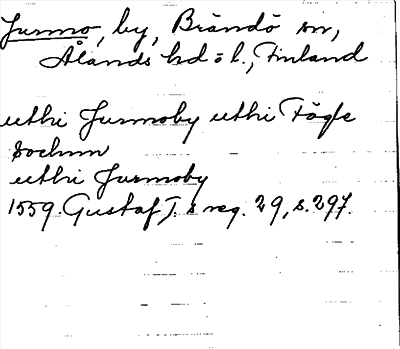 Jurmo, by, Brändö sn,
Ålands hd o l., Finland
uthi Jurmoby uthi Fögle
Sochnn
uthi Jurmoby
1559. Gustaf I. s reg. 29, s. 297.